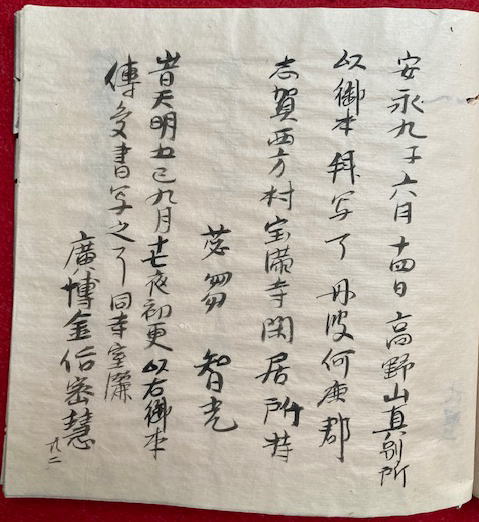 安永九子六月十四日高野山真別所
以御本拝写了丹波何鹿郡
志賀西方村宝満寺閑居所持
苾蒭 智光
昔天明五巳九月十七夜初更以右御本
傳受書写之了同寺室
廣博金剛密慧